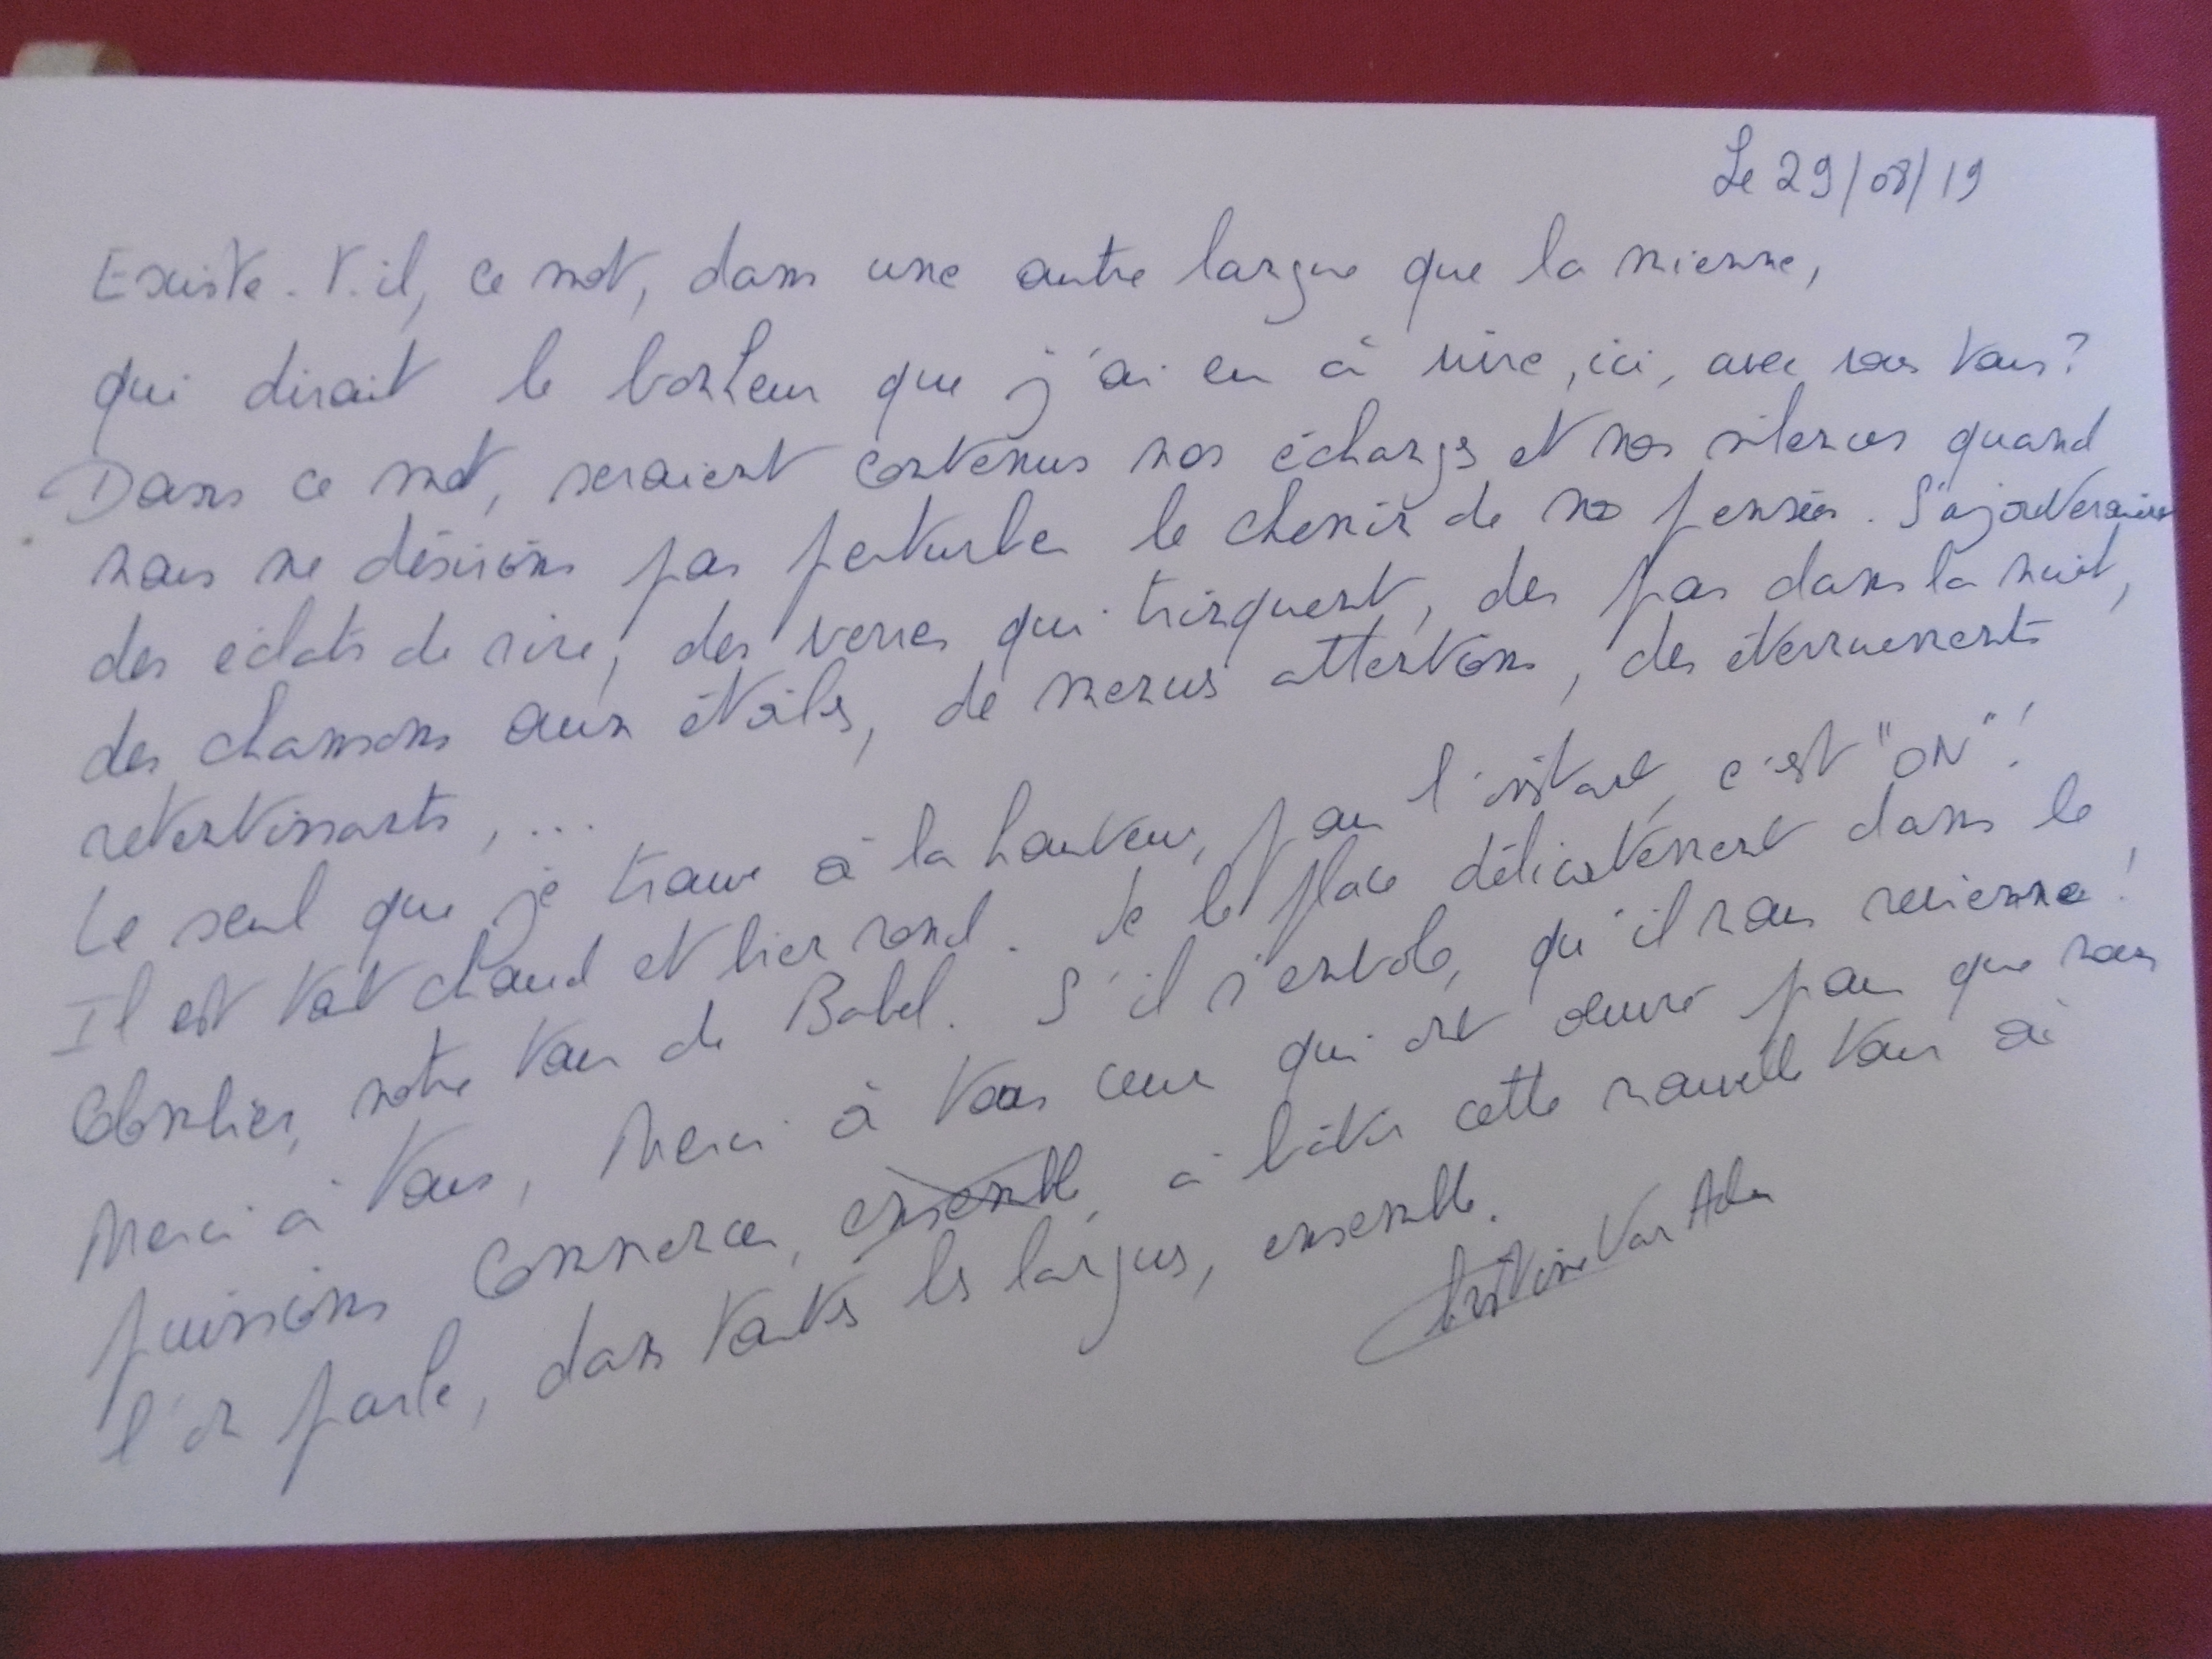 Le 29/08/19
Existe-t-il, ce mot, dans une autre langue que la mienne,
qui dirait le bonheur que j'ai eu à vivre, ici, avec vous tous?
Dans ce mot, seraient contenus nos échanges et nos silences quand
nous ne désirions pas perturber le chemin de nos pensées. S'ajouteraient
des éclats de rire, des verres qui trinquent, des pas dans la nuit,
des chansons aux étoiles, de menus attentions, des éternuements
retentissants, ...
Le seul que je trouve à la hauteur, pour l'instant, c'est "ON"!
Il est tout chaud et bien rond. Je le place délicatement dans le
colombier, notre tour de Babel. S'il s'envole, qu'il nous revienne!
Merci à tous, Merci à tous ceux qui ont œuvré pour que nous
puissions commencer, ensemble, à bâtir cette nouvelle tour où
l'on parle, dans toutes les langues, ensemble.